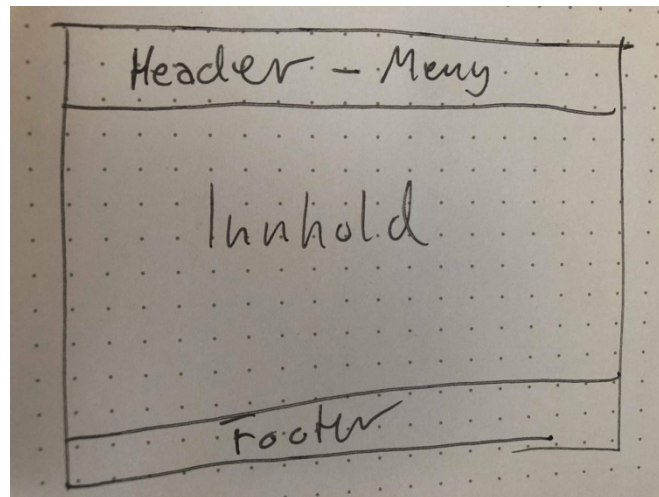 Header - Meny
Innhold
Footer